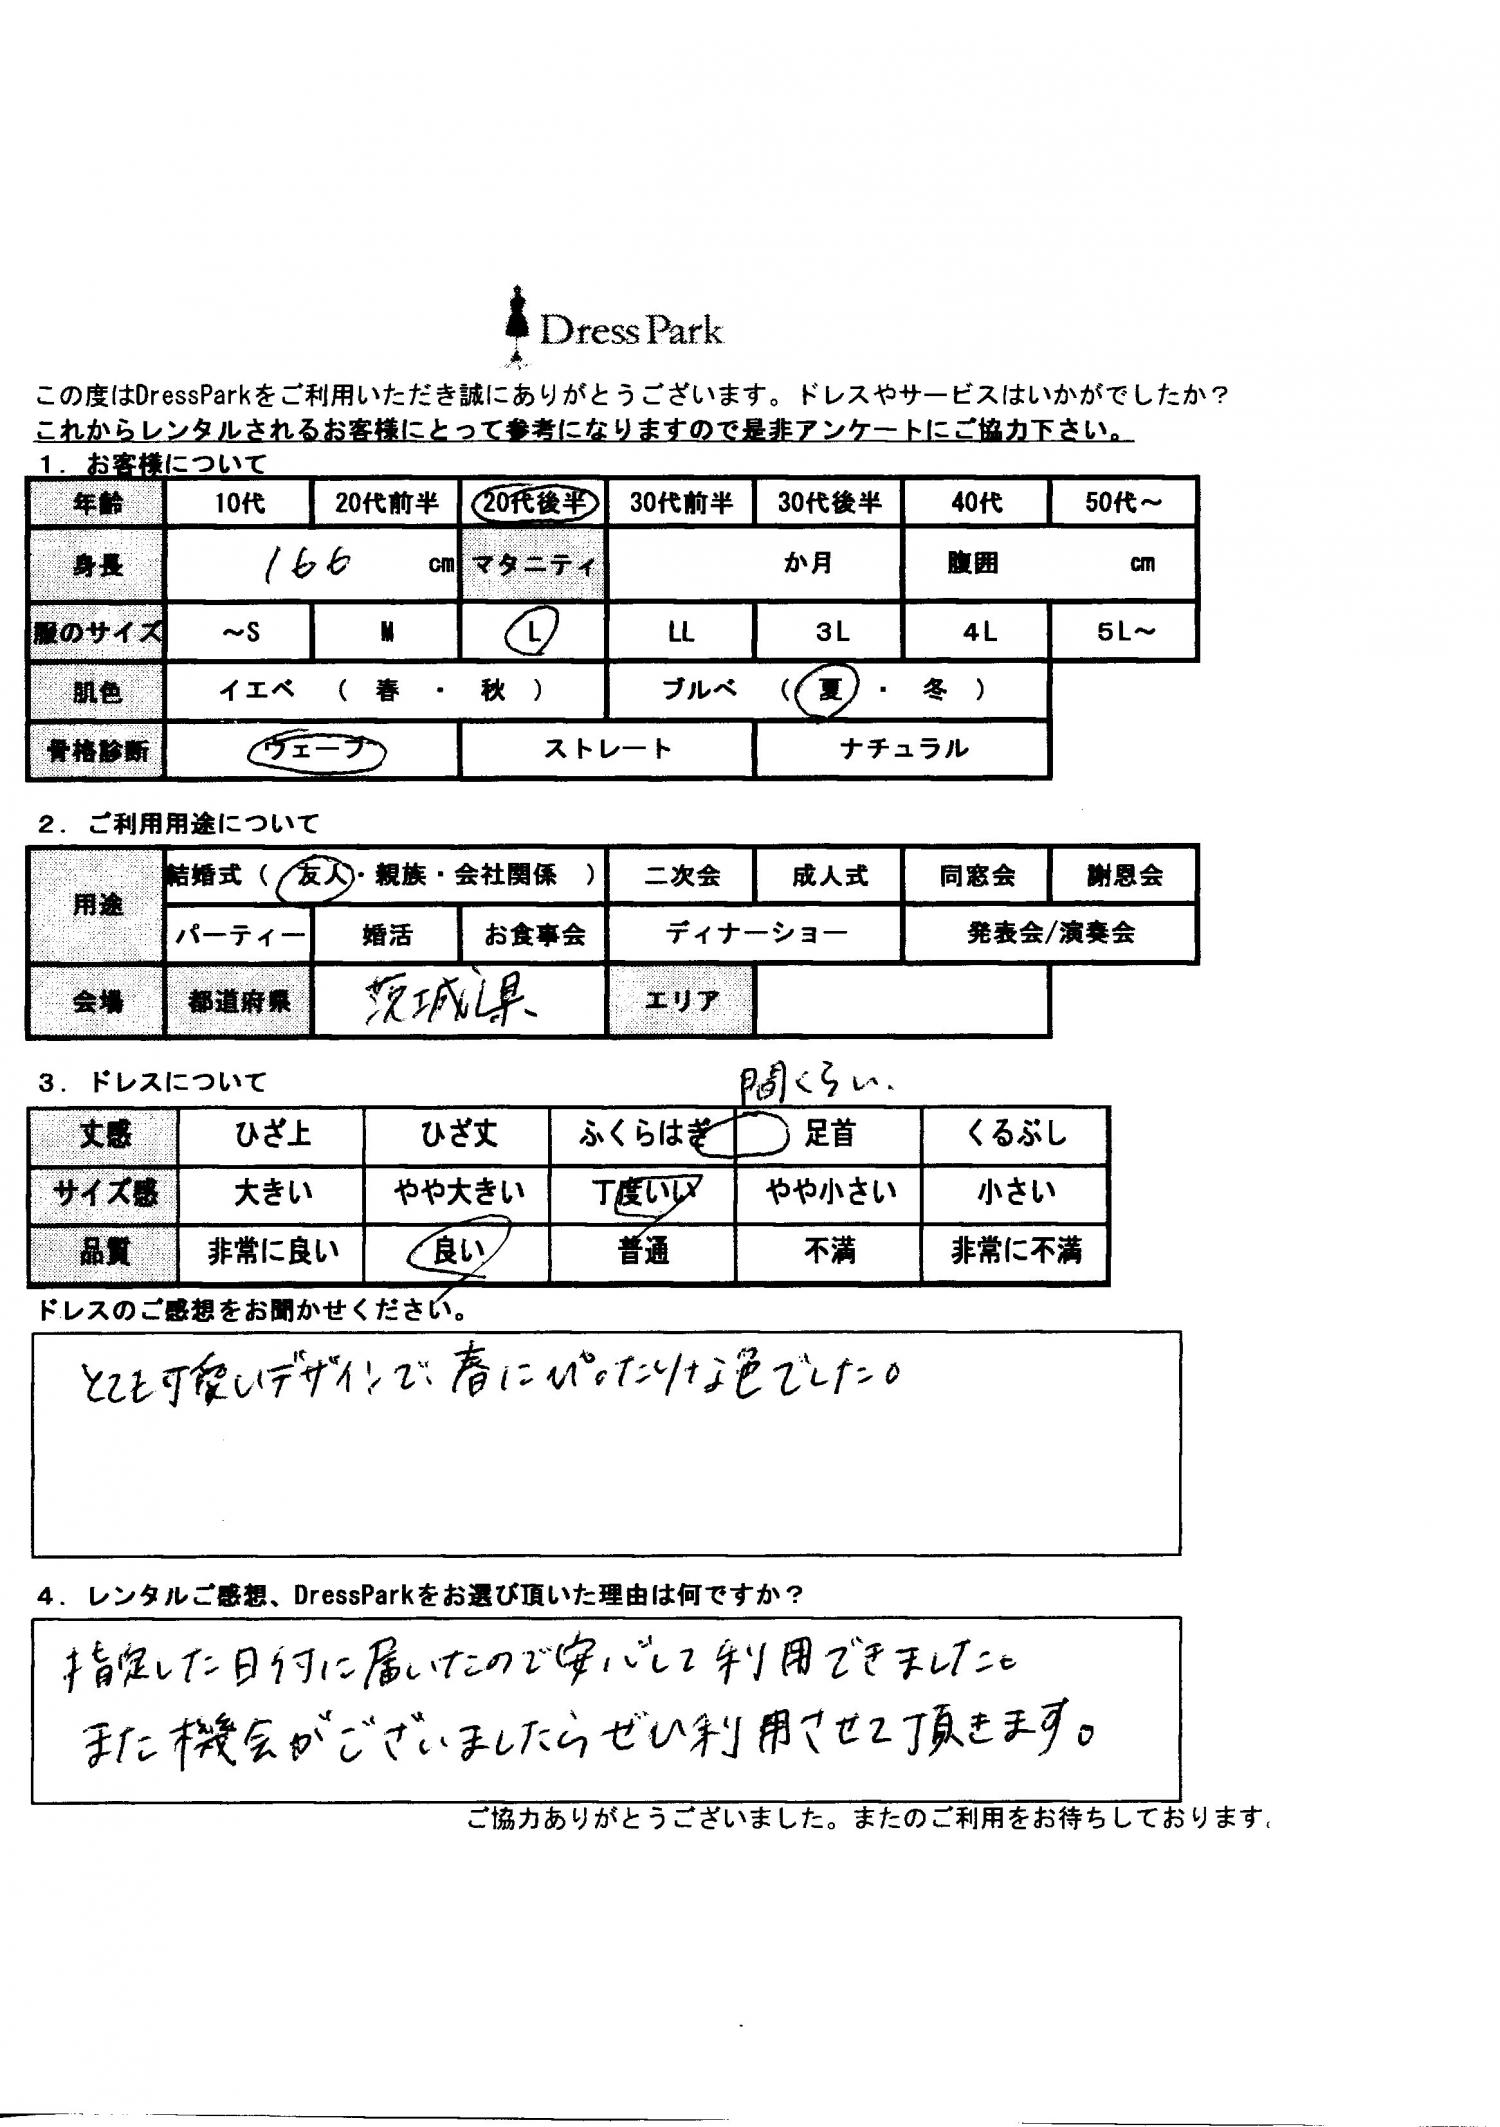 Dress Park
この度はDressParkをご利用いただき誠にありがとうございます。ドレスやサービスはいかがでしたか？
これからレンタルされるお客様にとって参考になりますので是非アンケートにご協力下さい。
1. お客様について
年齢 10代 20代前半 20代後半 30代前半 30代後半 40代 50代～
身長 166 cm マタニティ か月 腹囲 cm
服のサイズ ～S M L LL 3L 4L 5L～
肌色 イエベ （ 春 ・ 秋 ） ブルベ （ 夏 ・ 冬 ）
骨格診断 ウェーブ ストレート ナチュラル
2. ご利用用途について
用途 結婚式（ 友人・親族・会社関係 ） 二次会 成人式 同窓会 謝恩会
パーティー 婚活 お食事会 ディナーショー 発表会/演奏会
会場 都道府県 茨城県 エリア
3. ドレスについて
間くらい、
丈感 ひざ上 ひざ丈 ふくらはぎ 足首 くるぶし
サイズ感 大きい やや大きい 丁度いい やや小さい 小さい
品質 非常に良い 良い 普通 不満 非常に不満
ドレスのご感想をお聞かせください。
とても可愛いデザインで、春にぴったりな色でした。
4. レンタルご感想、DressParkをお選び頂いた理由は何ですか？
指定した日付に届いたので安心して利用できました。
また機会がございましたらぜひ利用させて頂きます。
ご協力ありがとうございました。またのご利用をお待ちしております。